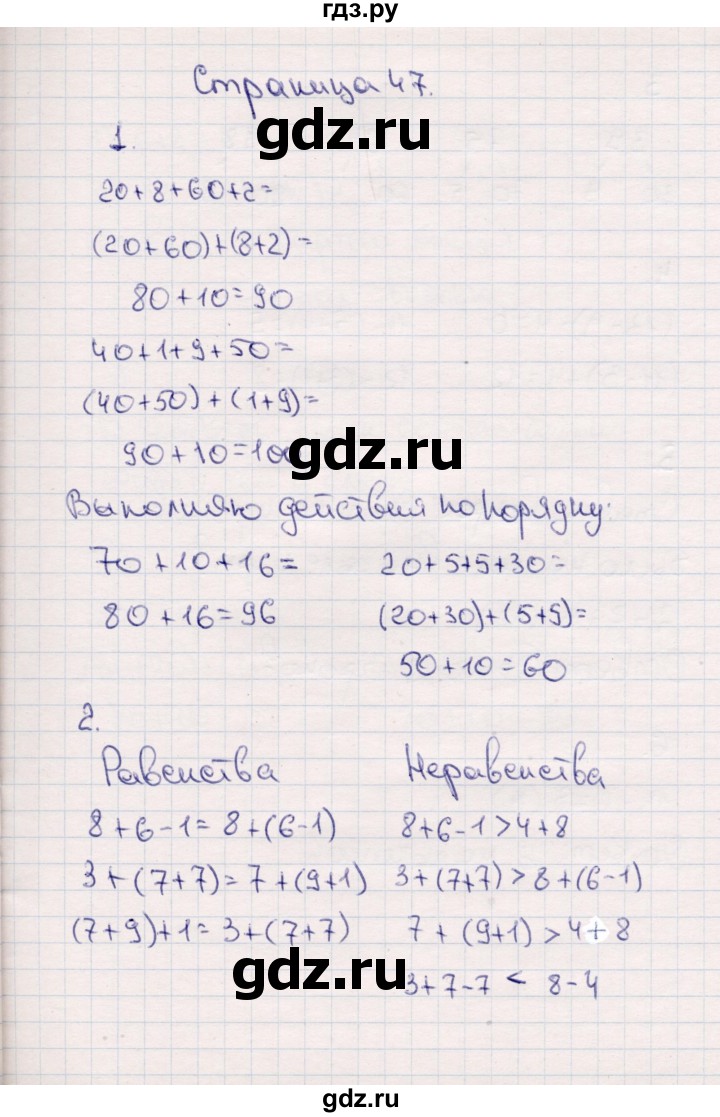 гдз.ру
Страница 47.
gdz.ru
1.
20+8+60+2=
(20+60)+(8+2)=
80+10=90
40+1+9+50=
(40+50)+(1+9)=
90+10=100
gdz.ru
Выполняю действия по порядку:
70+10+16=
80+16=96
20+5+5+30=
(20+30)+(5+5)=
50+10=60
gdz.ru
2.
Равенства
8+6-1=8+(6-1)
3+(7+7)=7+(9+1)
(7+9)+1=3+(7+7)
Неравенства
8+6-1>4+8
3+(7+7)>8+(6-1)
7+(9+1)>4+8
3+7-7<8-4
gdz.ru
gdz.ru